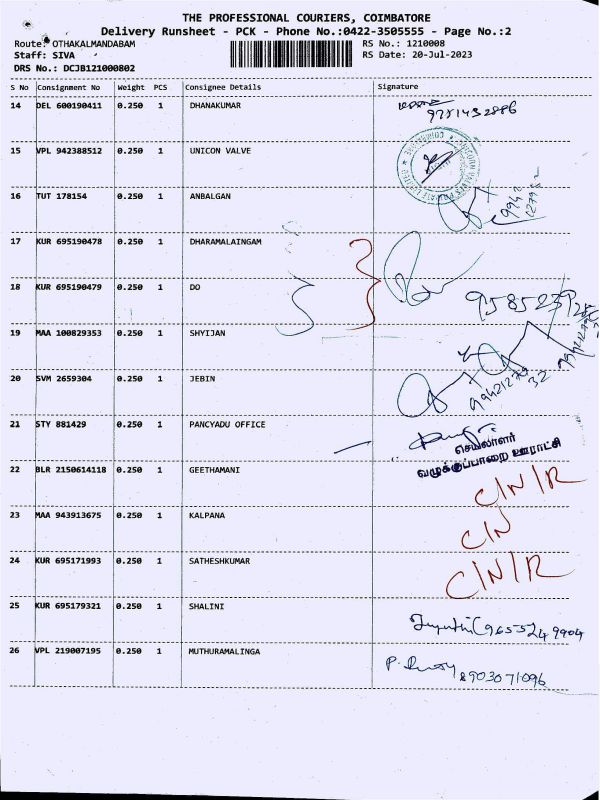 THE PROFESSIONAL COURIERS, COIMBATORE
Delivery Runsheet - PCK - Phone No.:0422-3505555 - Page No.:2
Route: OTHAKALMANDABAM RS No.: 1210008
Staff: SIVA RS Date: 20-Jul-2023
DRS No.: DCJB121000802
S No Consignment No Weight PCS Consignee Details Signature
14 DEL 600190411 0.250 1 DHANAKUMAR
9751432886
15 VPL 942388512 0.250 1 UNICON VALVE
16 TUT 178154 0.250 1 ANBALGAN
17 KUR 695190478 0.250 1 DHARAMALAINGAM
18 KUR 695190479 0.250 1 DO
19 MAA 100829353 0.250 1 SHYIJAN
20 SVM 2659304 0.250 1 JEBIN
9942127932
21 STY 881429 0.250 1 PANCYADU OFFICE
செயலாளர்
வழுக்குப்பாறை ஊராட்சி
22 BLR 2150614118 0.250 1 GEETHAMANI C/N/R
23 MAA 943913675 0.250 1 KALPANA C/N
24 KUR 695171993 0.250 1 SATHESHKUMAR C/N/R
25 KUR 695179321 0.250 1 SHALINI
9655249904
26 VPL 219007195 0.250 1 MUTHURAMALINGA
8903071096